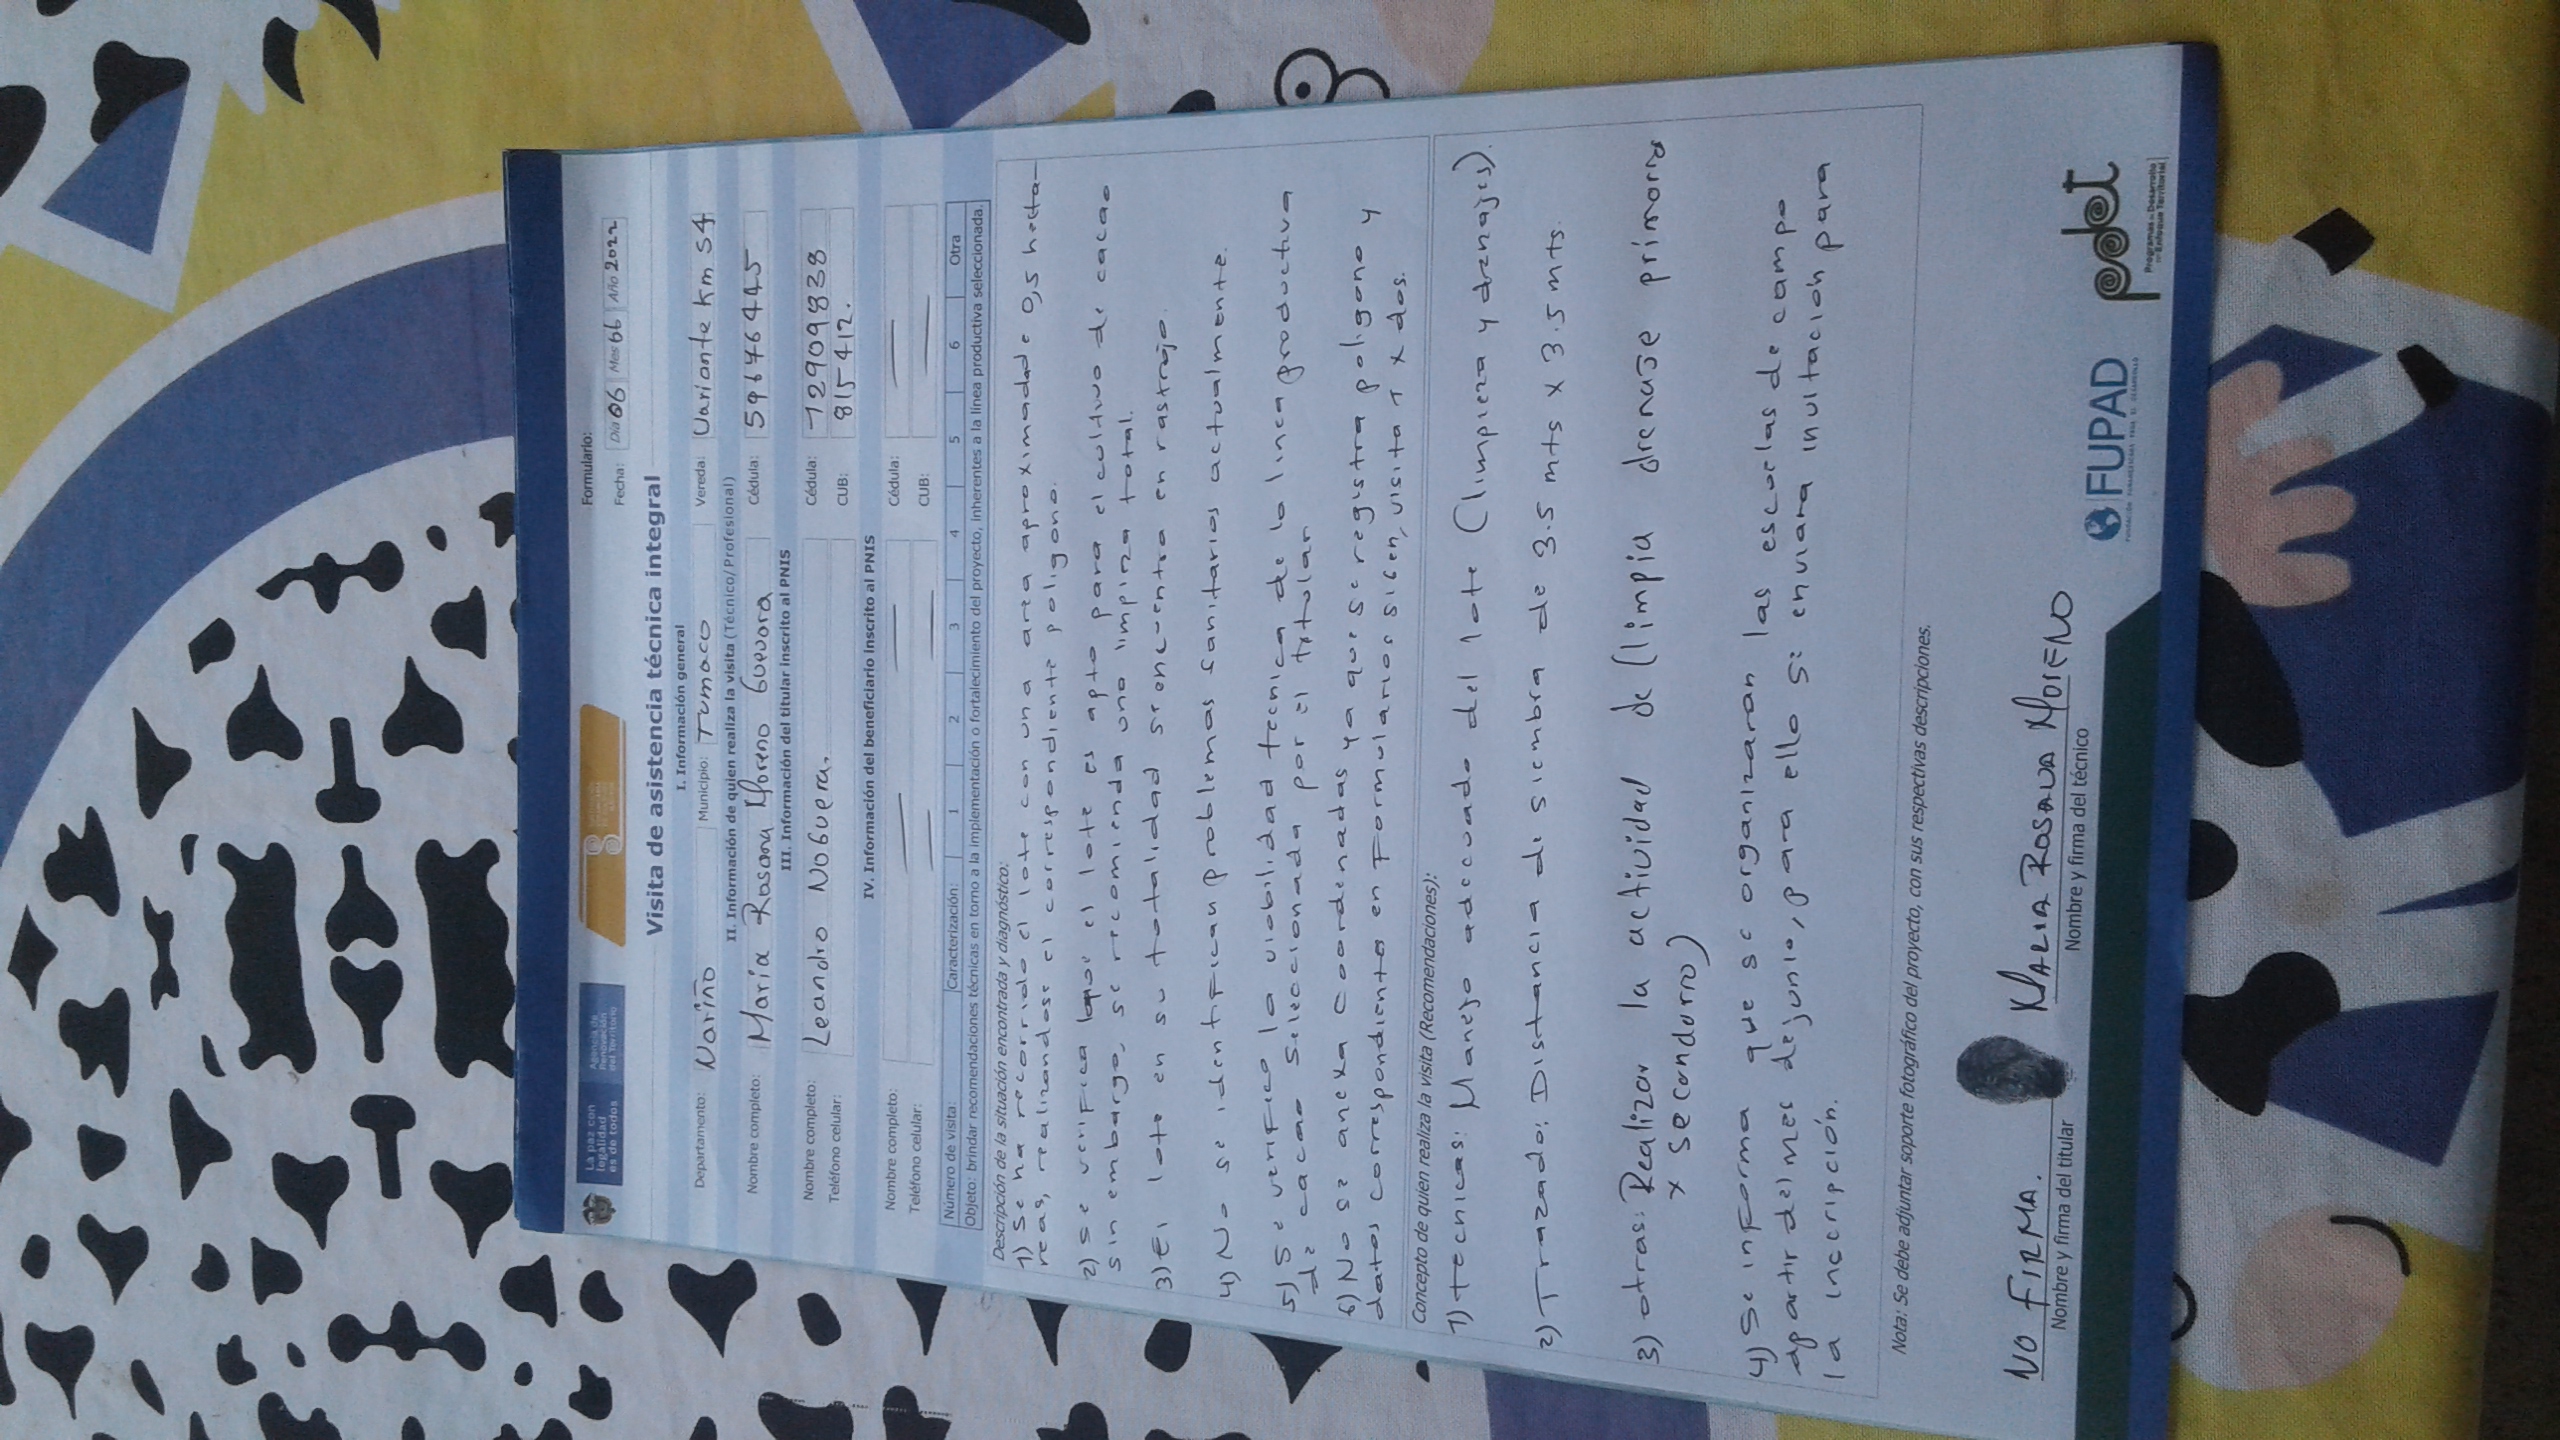 La paz con
legalidad
es de todos
Agencia de
Renovación
del Territorio
Formulario:
Fecha: Día 06 Mes 06 Año 2022
Visita de asistencia técnica integral
I. Información general
Departamento: Nariño Municipio: Tumaco Vereda: Variante Km 54
II. Información de quien realiza la visita (Técnico/Profesional)
Nombre completo: María Rosana Moreno Guevara Cédula:
III. Información del titular inscrito al PNIS
Nombre completo: Leandro Noguera. Cédula: 12909838
Teléfono celular: CUB: 815412.
IV. Información del beneficiario inscrito al PNIS
Nombre completo: Cédula:
Teléfono celular: CUB:
Número de visita: Caracterización: 1 2 3 4 5 6 Otra
Objeto: brindar recomendaciones técnicas en torno a la implementación o fortalecimiento del proyecto, inherentes a la línea productiva seleccionada.
Descripción de la situación encontrada y diagnóstico:
1) Se ha recorrido el lote con una area aproximadade 0,5 hecta-
reas, realizandose el correspondiente poligono.
2) se verifica que el lote es apto para el cultivo de cacao
sin embargo, se recomienda una limpieza total.
3) El lote en su totalidad se encuentra en rastrojo.
4) No se identifican problemas sanitarios actualmente.
5) Se verifico la viabilidad tecnica de la linea productiva
de cacao seleccionada por el titular
6) No se anexa coordenadas ya que se registra poligono y
datos correspondientes en Formularios sigen, visita 1 x dos.
Concepto de quien realiza la visita (Recomendaciones):
1) tecnicas: Manejo adecuado del lote (limpieza y drenajes).
2) Trazado: Distancia de siembra de 3.5 mts x 3.5 mts.
3) otras: Realizar la actividad de (limpia drenaje primario
x secundario)
4) Se informa que se organizaran las escuelas de campo
apartir del mes dejunio, para ello se enviara invitacion para
la inscripción.
Nota: Se debe adjuntar soporte fotográfico del proyecto, con sus respectivas descripciones.
NO FIRMA. MARIA ROSANA MORENO
Nombre y firma del titular Nombre y firma del técnico
FUPAD
pdet
Programas de Desarrollo
con Enfoque Territorial